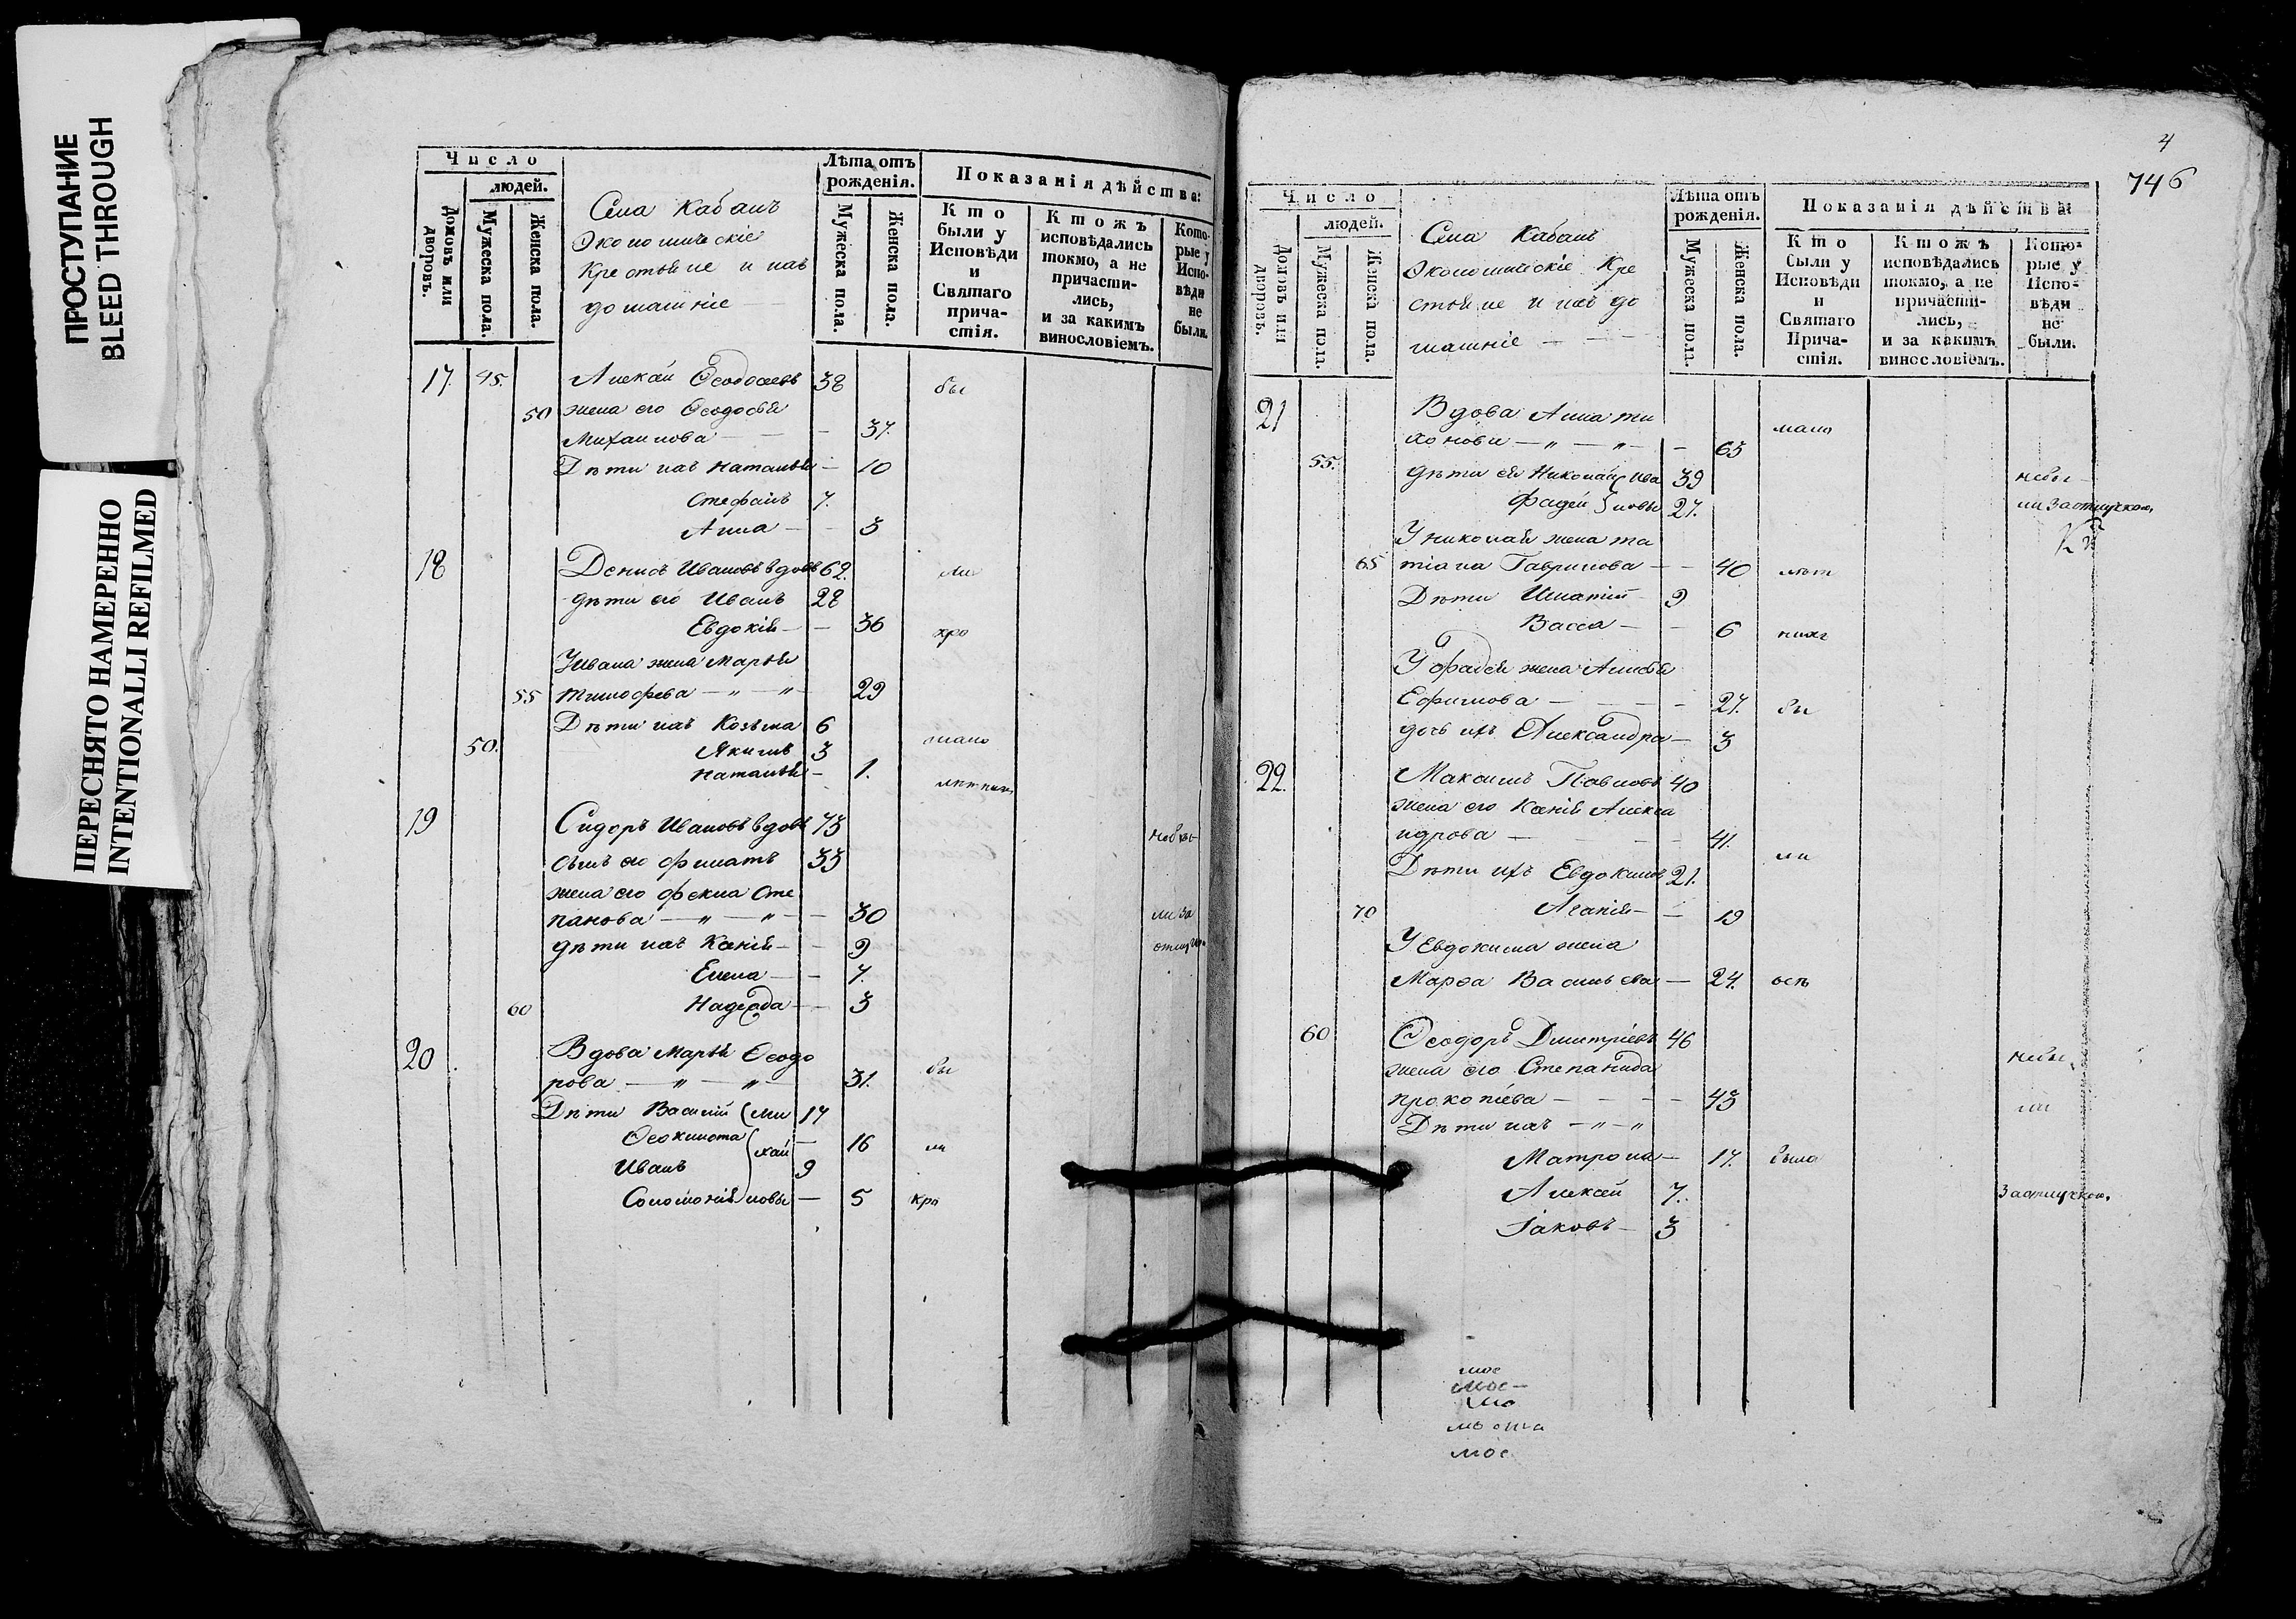 ПРОСТУПАНИЕ
BLEED THROUGH
ПЕРЕСНЯТО НАМЕРЕННО
INTENTIONALLI REFILMED
Число
людей.
Домовъ или дворовъ.
Мужеска пола.
Женска пола.
Села Кабанъ
Экономическіе
Крестьяне и ихъ
домашніе
Лѣта отъ рожденія.
Мужеска пола.
Женска пола.
Показанія дѣйства:
Кто были у Исповѣди и Святаго причастія.
Ктожъ исповѣдались токмо, а не причастились, и за какимъ винословіемъ.
Которые у Исповѣди не были.
17. 45. Алексѣй Ѳеодосеевъ 38 бы
50 жена его Ѳеодосья
Михаилова — — 37.
Дѣти ихъ Наталья — 10
Стефанъ 7.
Анна — — 3
18 Денисъ Ивановъ вдовъ 62. ли
дѣти его Иванъ 28
Евдокія — — 36 кро
У Ивана жена Марья
55 Тимофева — " — " 29
Дѣти ихъ Козьма 6
50. Якимъ 3 мало
Наталья — 1.
19 Сидоръ Ивановъ вдовъ 73 небы-
сынъ его Филатъ 33
жена его Фекла Сте
панова — " — " — 30 ли за
дѣти ихъ Ксенія — — 9
Елена — — 7.
60 Надежда — — 3
20 Вдова Марья Ѳеодо
рова — " — " — 31. бы
Дѣти Василій ми 14
Ѳеоктиста хай — 16 ли
Иванъ 9
Соломонія ловы — 5 кро
4
746
Число
людей.
Домовъ или дворовъ.
Мужеска пола.
Женска пола.
Села Кабанъ
Экономическіе Кре
стьяне и ихъ до
машніе — — —
Лѣта отъ рожденія.
Мужеска пола.
Женска пола.
Показанія дѣйства:
Кто были у Исповѣди и Святаго Причастія.
Ктожъ исповѣдались токмо, а не причастились, и за какимъ винословіемъ.
Которые у Исповѣди не были.
21 Вдова Анна ти
хонова — " — " — 65 мало
55. дѣти ея Николай Ива 39 небы-
Фадей новы 27. ли за отлучкою,
У Николая жена та
65 тіана Гаврилова — — 40 лѣт
Дѣти Игнатій 9
Васса — — 6
У Фадея жена Анисья
Ефимова — — — 27. бы
дочь ихъ Александра — 3
22. Максимъ Павловъ 40
жена его Ксенія Алекса
ндрова — — 41.
ли
Дѣти ихъ Евдокимъ 21.
70 Агапія — — 19
У Евдокима жена
Марѳа Васильева — 24.
60 Ѳеодоръ Дмитріевъ 46 небы
жена его Степанида
прокопіева — — — — 43 ли
Дѣти ихъ — " — "
Матрона — 17. была
Алексѣй 7. за отлучкою,
Іаковъ — 3
мое
мое-
мо
мое